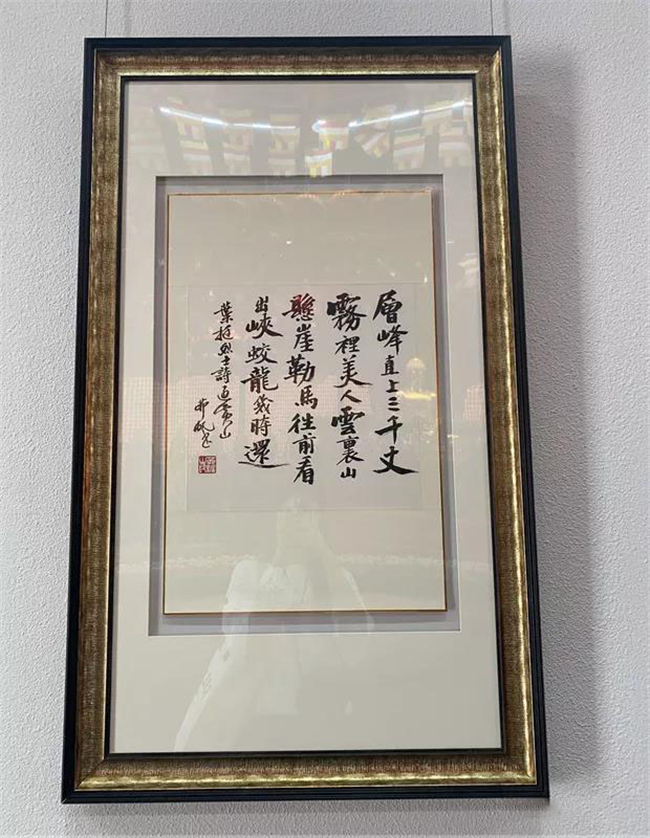 層峰直上三千丈
霧裡美人雲裏山
懸崖勒馬往前看
出峽蛟龍幾時還
葉挺烈士詩黃山